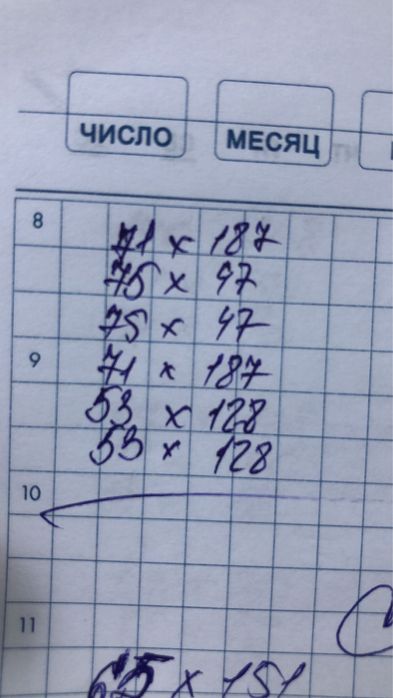 ЧИСЛО МЕСЯЦ
8
71 x 187
75 x 47
75 x 47
9
71 x 187
53 x 128
53 x 128
10
11
65 x 151